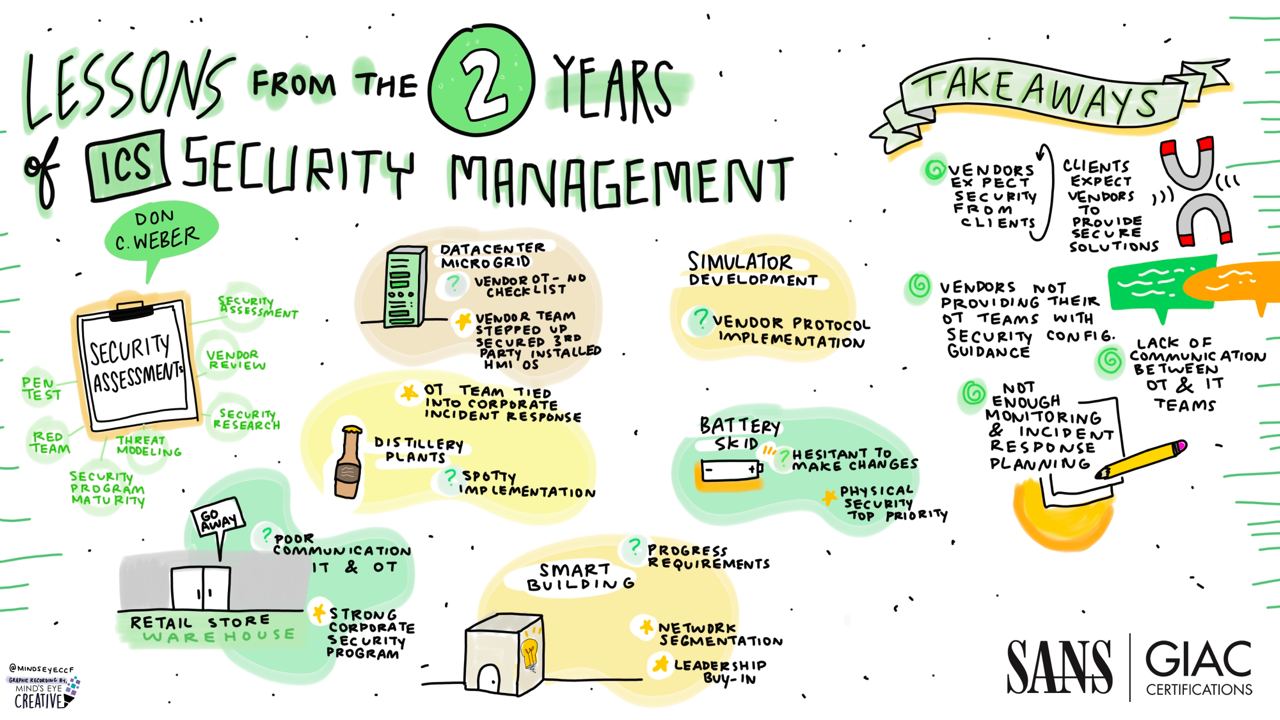 LESSONS FROM THE 2 YEARS
of ICS SECURITY MANAGEMENT
DON
C. WEBER
SECURITY
ASSESSMENTS
SECURITY
ASSESSMENT
VENDOR
REVIEW
SECURITY
RESEARCH
THREAT
MODELING
SECURITY
PROGRAM
MATURITY
RED
TEAM
PEN
TEST
DATACENTER
MICROGRID
? VENDOR OT - NO
CHECKLIST
VENDOR TEAM
STEPPED UP
SECURED 3RD
PARTY INSTALLED
HMI OS
SIMULATOR
DEVELOPMENT
? VENDOR PROTOCOL
IMPLEMENTATION
OT TEAM TIED
INTO CORPORATE
INCIDENT RESPONSE
DISTILLERY
PLANTS
? SPOTTY
IMPLEMENTATION
BATTERY
SKID
? HESITANT TO
MAKE CHANGES
PHYSICAL
SECURITY
TOP PRIORITY
GO
AWAY
? POOR
COMMUNICATION
IT & OT
RETAIL STORE
WAREHOUSE
STRONG
CORPORATE
SECURITY
PROGRAM
SMART
BUILDING
? PROGRESS
REQUIREMENTS
NETWORK
SEGMENTATION
LEADERSHIP
BUY-IN
TAKEAWAYS
VENDORS
EXPECT
SECURITY
FROM
CLIENTS
CLIENTS
EXPECT
VENDORS
TO
PROVIDE
SECURE
SOLUTIONS
VENDORS NOT
PROVIDING THEIR
OT TEAMS WITH
SECURITY CONFIG.
GUIDANCE
LACK OF
COMMUNICATION
BETWEEN
OT & IT
TEAMS
NOT
ENOUGH
MONITORING
& INCIDENT
RESPONSE
PLANNING
@MINDSEYECCF
GRAPHIC RECORDING BY:
MIND'S EYE
CREATIVE
SANS
GIAC
CERTIFICATIONS